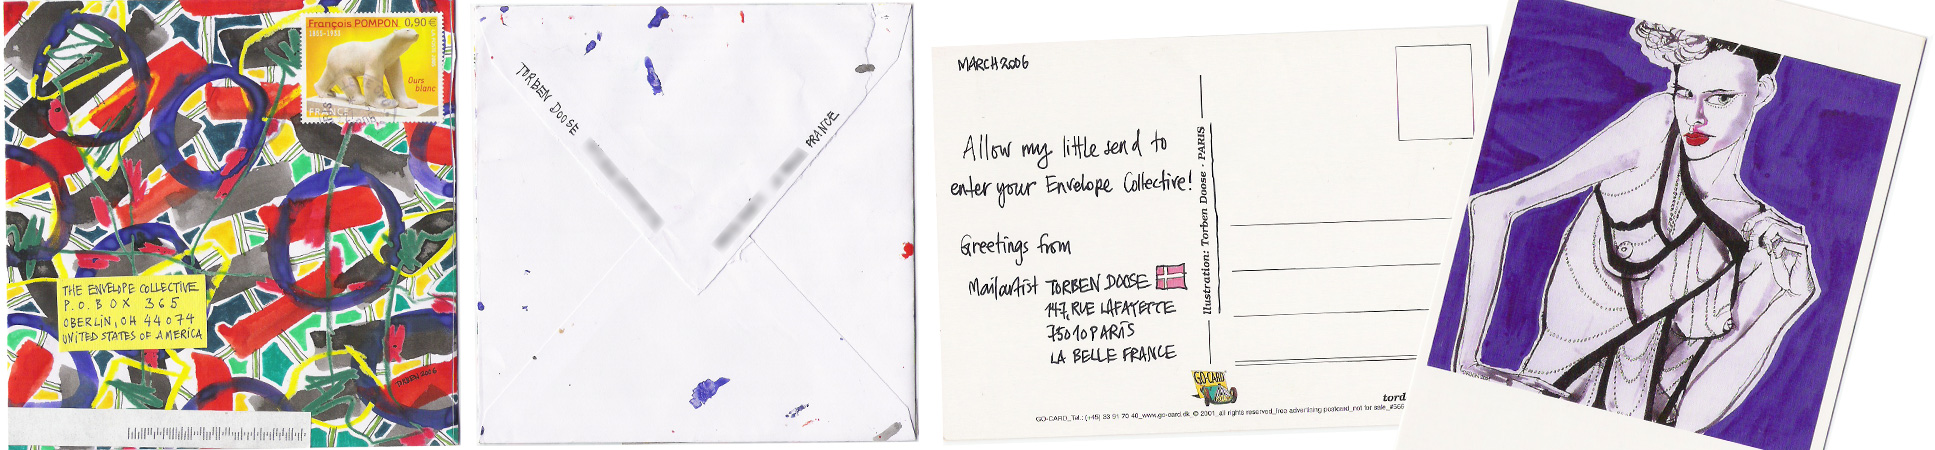 François POMPON 0,90 €
1855-1933
Ours
blanc
FRANCE
THE ENVELOPE COLLECTIVE
P.O.BOX 365
OBERLIN, OH 44074
UNITED STATES OF AMERICA
TORBEN 2006
TORBEN DOOSE
FRANCE
MARCH 2006
Allow my little send to
enter your Envelope Collective!
Greetings from
Mailartist TORBEN DOOSE
147, RUE LAFAYETTE
75010 PARIS
LA BELLE FRANCE
Illustration: Torben Doose · PARIS
GO-CARD
tord
GO-CARD_Tel.: (+45) 33 91 70 40_www.go-card.dk_© 2001_all rights reserved_free advertising postcard_not for sale_#566